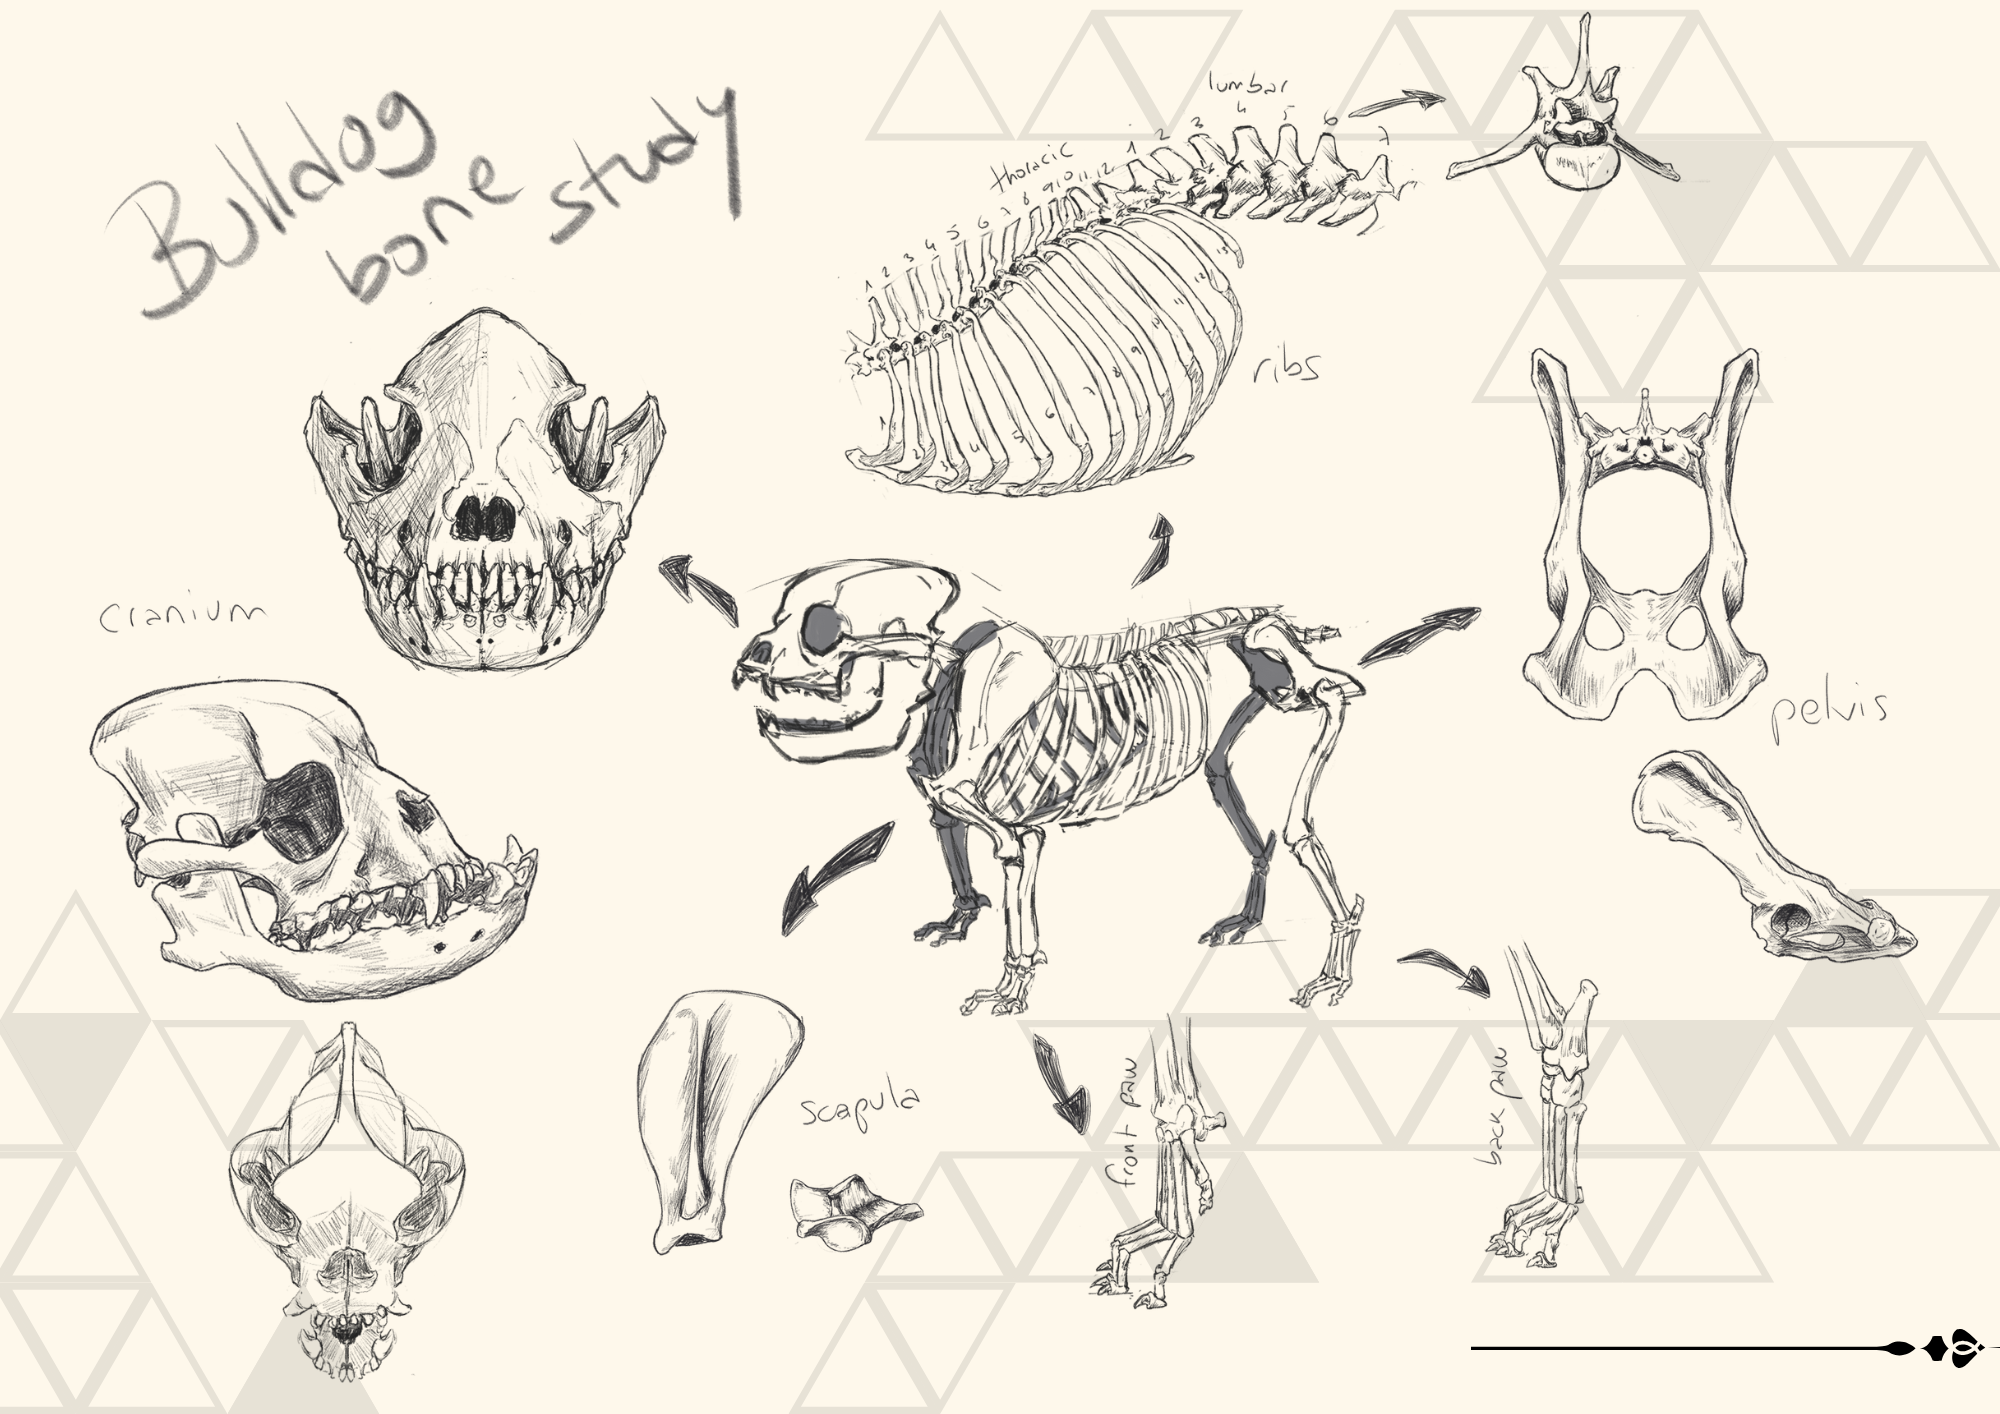 Bulldog
bone study
lumbar
1 2 3 4 5 6 7
thoracic
1 2 3 4 5 6 7 8 9 10 11 12
13
12
11
10
9
8
7
6
5
4
3
2
1
ribs
cranium
pelvis
scapula
front paw
back paw